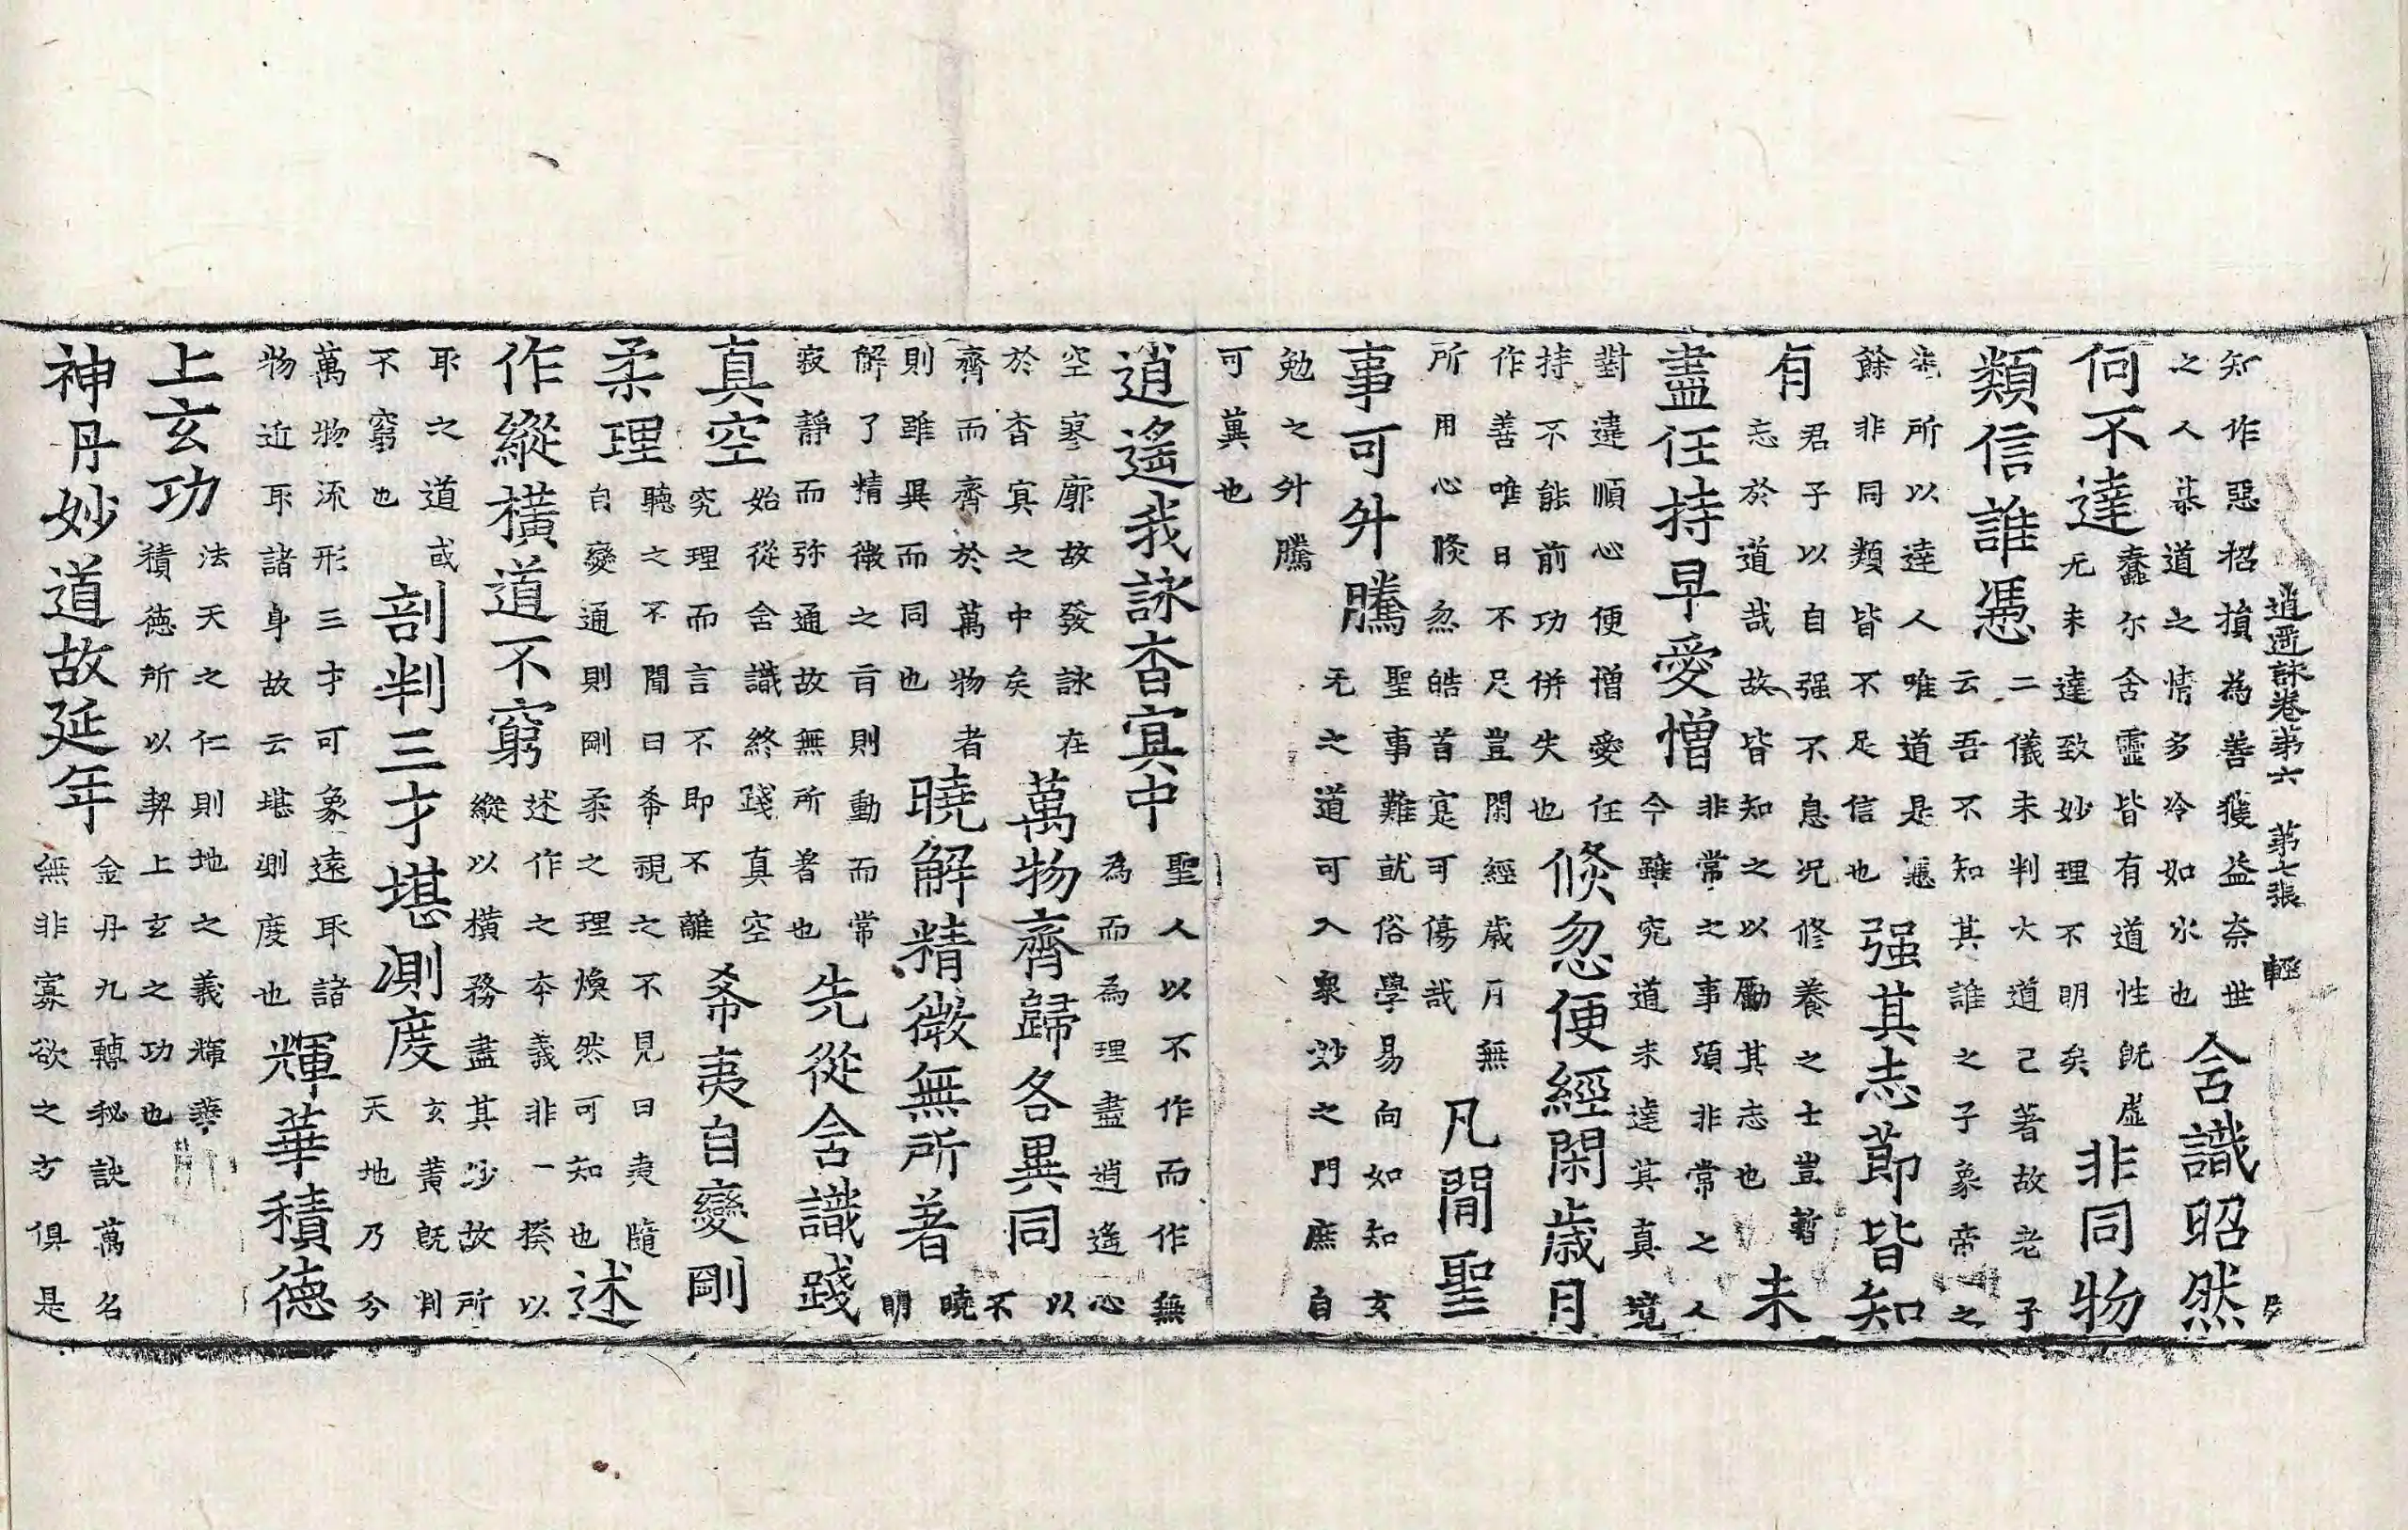 逍遥詠卷第六 第七張 輕
知作惡招損為善獲益奈世
之人慕道之情多冷如水也
含識昭然
何不達
蠢尒含靈皆有道性旣虛
无未達致妙理不明矣
非同物
類信誰憑
二儀未判大道已著故老子
云吾不知其誰之子象帝之
先所以達人唯道是憑
餘非同類皆不足信也
强其志節皆知
有
君子以自强不息况修養之士豈暫
忘於道哉故皆知之以勵其志也
未
盡任持早愛憎
非常之事須非常之人
今雖究道未達其真境
對違順心便憎愛任
持不能前功併失也
倐忽便經閑歲月
作善唯日不足豈閑經歲月無
所用心倐忽皓首寔可傷哉
凡聞聖
事可外騰
聖事難就俗學易向如知玄
无之道可入衆妙之門庶自
勉之外騰
可冀也
逍遙我詠杳冥中
聖人以不作而作無
為而為理盡逍遙心
空寥廓故發詠在
於杳冥之中矣
萬物齊歸各異同
以
不
齊而齊於萬物者
則雖異而同也
曉解精微無所著
曉
明
解了精微之旨則動而常
寂靜而弥通故無所著也
先從含識踐
真空
始從含識終踐真空
究理而言不即不離
希夷自變剛
柔理
聽之不聞曰希視之不見曰夷隨
自變通則剛柔之理煥然可知也
述
作縱橫道不窮
述作之本義非一揆以
縱以橫務盡其妙故所
取之道或
不窮也
剖判三才堪測度
玄黃旣判
天地乃分
萬物流形三才可象遠取諸
物近取諸身故云堪測度也
輝華積德
上玄功
法天之仁則地之義輝華
積德所以契上玄之功也
神丹妙道故延年
金丹九轉秘訣萬名
無非寡欲之方俱是